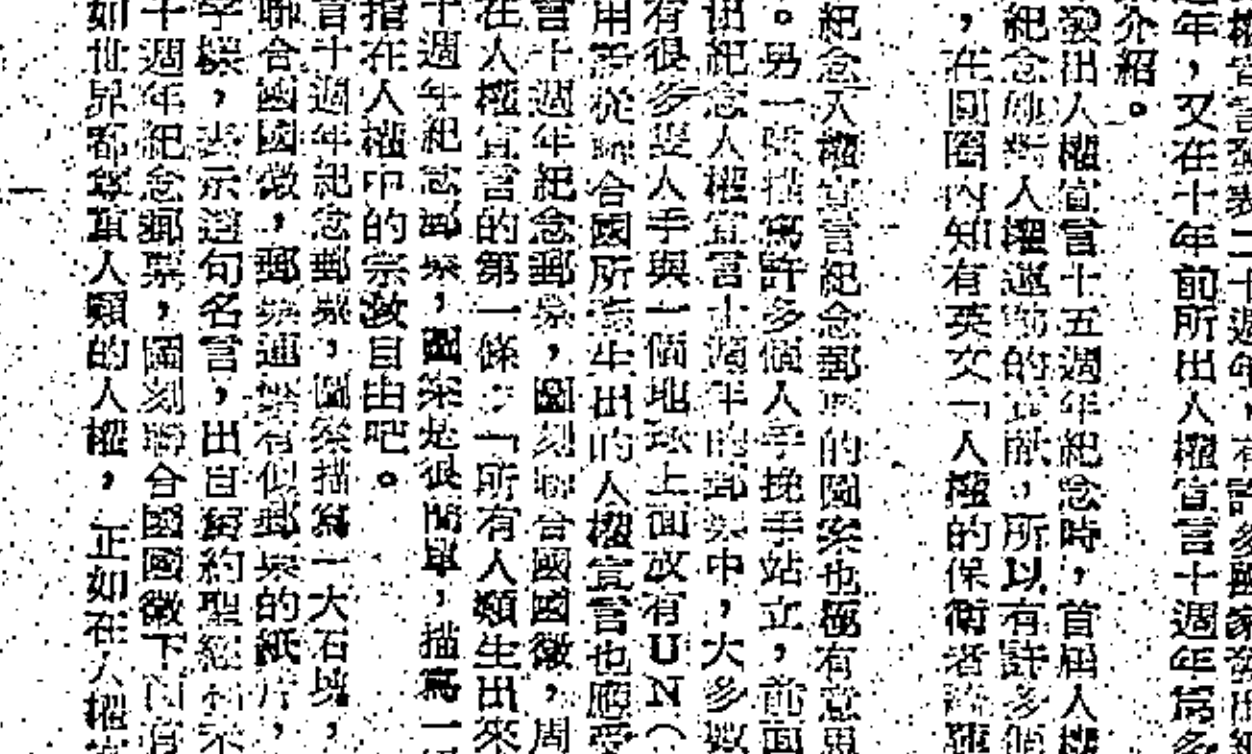 權宣言發表二十週年,有許多國家發出紀
週年,又在十年前所出人權宣言十週年為多
介紹。
發出人權宣言十五週年紀念時,首屆人權
紀念她對人權運動的貢獻,所以有許多個
,在圓圈內知有英文「人權的保衛者
紀念人權宣言紀念郵票的圖案也極有意思
。另一張描寫許多個人手挽手站立,前面
出紀念人權宣言十週年的郵票中,大多數
有很多隻人手與一個地球上面放有UN(
用語從聯合國所產生出的人權宣言也應受
言十週年紀念郵票,圖刻聯合國國徽,周
在人權宣言的第一條:「所有人類生出來
十週年紀念郵票,圖案是很簡單,描寫一
指在人權中的宗教自由吧。
言十週年紀念郵票,圖案描寫一大石塊,
聯合國國徽,郵票邊緣有似郵票的紙片,
字樣,表示這句名言,出自舊約聖經
十週年紀念郵票,圖刻聯合國國徽下
如世界都尊重人類的人權,正如在人權